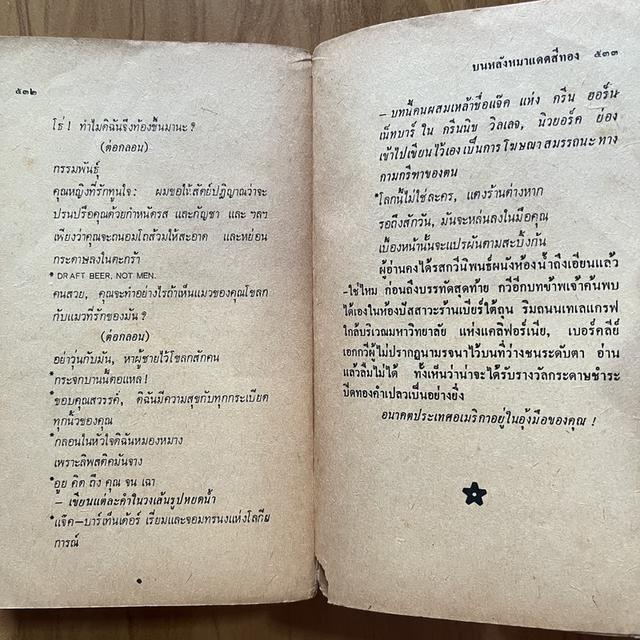 ๕๓๒
โธ่ ! ทำไมดิฉันจึงท้องขึ้นมานะ ?
(ต่อกลอน)
กรรมพันธุ์
คุณหญิงที่รักทูนใจ : ผมขอให้สัตย์ปฏิญาณว่าจะ
ปรนปรือคุณด้วยกำหนัดรส และกัญชา และ ฯลฯ
เพียงว่าคุณจะถนอมโถส้วมให้สะอาด และหย่อน
กระดาษลงในตะกร้า
* DRAFT BEER, NOT MEN.
คนสวย, คุณจะทำอย่างไรถ้าเห็นแมวของคุณโขลก
กับแมวที่รักของมัน ?
(ต่อกลอน)
อย่าวุ่นกับมัน, หาผู้ชายไว้โขลกสักคน
*กระจกบานนี้ตอแหล !
*ขอบคุณสวรรค์, ดิฉันมีความสุขกับทุกกระเบียด
ทุกนิ้วของคุณ
*กลอนในหัวใจดิฉันหมองหมาง
เพราะลิพสติคมันจาง
*อูย คิด ถึง คุณ จน เฉา
– เขียนแต่ละคำในวงเส้นรูปหยดน้ำ
*แจ๊ค—บาร์เท็นเด้อร์ เรี่ยมและจอมทรนงแห่งโลกีย
การณ์
บนหลังหมาแดดสีทอง ๕๓๓
– บทนี้คนผสมเหล้าชื่อแจ๊ค แห่ง กรีน ฮอร์น
เน็ทบาร์ ใน กรีนนิช วิลเลจ, นิวยอร์ค ย่อง
เข้าไปเขียนไว้เอง เป็นการโฆษณาสมรรถนะทาง
กามกรีฑาของตน
*โลกนี้ไม่ใช่ละคร, แตงร้านต่างหาก
รอถึงสักวัน, มันจะหล่นลงในมือคุณ
เบื้องหน้านั้นจะแปรผันตามสะบึ้งกัน
ผู้อ่านคงได้รสกวีนิพนธ์ผนังห้องน้ำถึงเอียนแล้ว
–ใช่ไหม ก่อนถึงบรรทัดสุดท้าย กวีอีกบทข้าพเจ้าค้นพบ
ได้เองในห้องปัสสาวะร้านเบียร์ใต้ถุน ริมถนนเทเลแกรฟ
ใกล้บริเวณมหาวิทยาลัย แห่งแคลิฟอร์เนีย, เบอร์คลีย์
เอกกวีผู้ไม่ปรากฏนามรจนาไว้บนที่ว่างชนระดับตา อ่าน
แล้วลืมไม่ได้ ทั้งเห็นว่าน่าจะได้รับรางวัลกระดาษชำระ
ปิดทองคำเปลวเป็นอย่างยิ่ง
อนาคตประเทศอเมริกาอยู่ในอุ้งมือของคุณ !